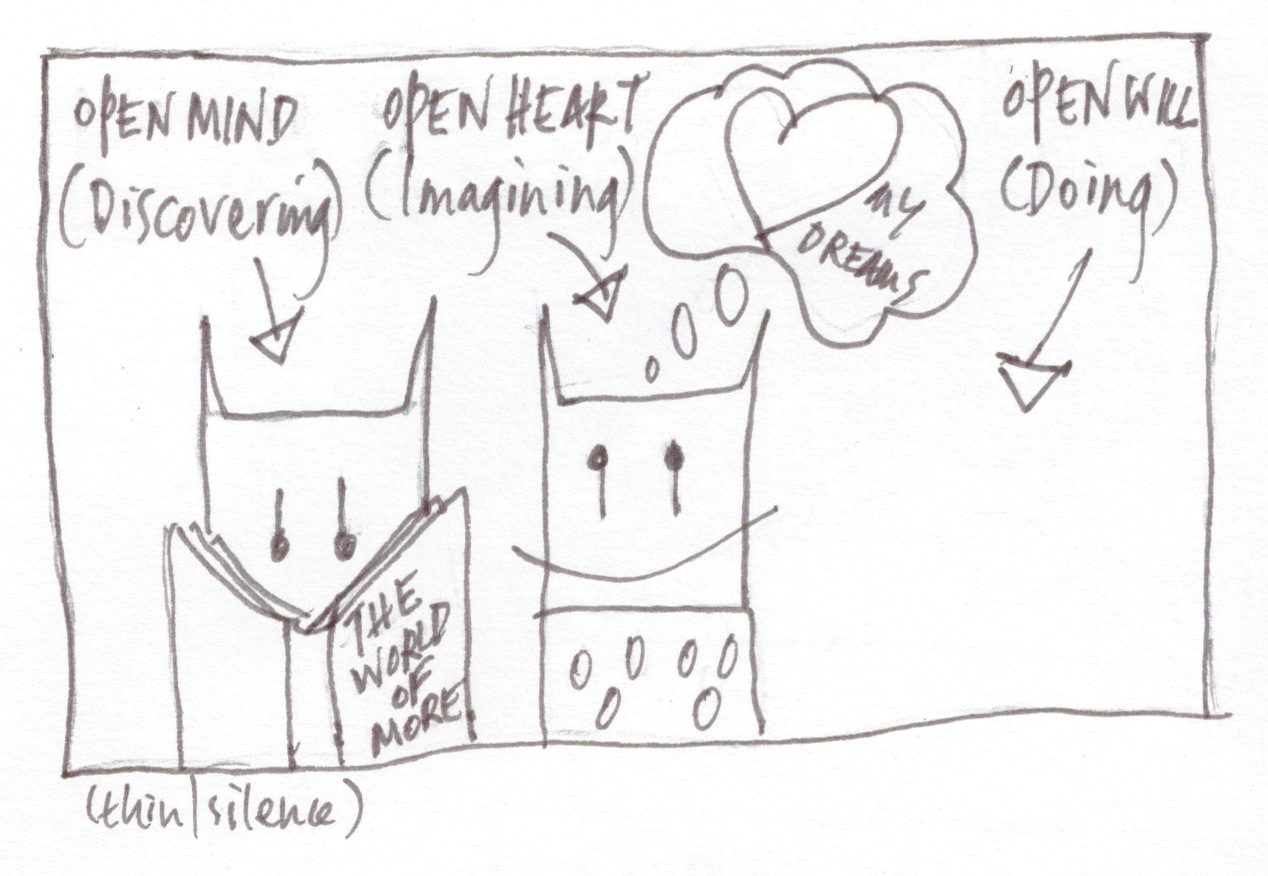 OPEN MIND
(Discovering)
OPEN HEART
(Imagining)
my
DREAMS
OPEN WILL
(Doing)
THE
WORLD
OF
MORE
(thin|silence)